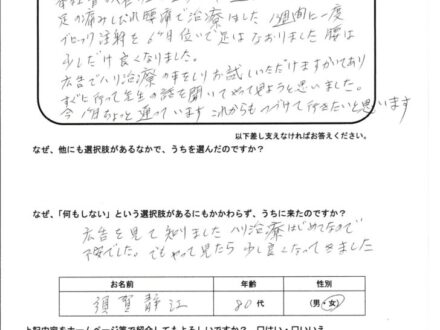 足が痛みしびれ腰痛で治療はした 1週間に一度
ブロック注射を6ヶ月位いで足はなおりました 腰は
少しだけ良くなりました。
広告でハリ治療の事をしりお試しいただけますがいてあり
すぐに行って先生の話を聞いてやって見ようと思いました。
今1ヶ月ちょっと通っています これからもつづけて行きたいと思います
以下差し支えなければお答えください。
なぜ、他にも選択肢があるなかで、うちを選んだのですか?
なぜ、「何もしない」という選択肢があるにもかかわらず、うちに来たのですか?
広告を見て知りました ハリ治療はじめてなので
不安でした。でもやって見たら少し良くなってきました
お名前 年齢 性別
須賀静江 80代 (男・女)
上記内容をホームページ等で紹介してもよろしいですか? □はい・□いいえ